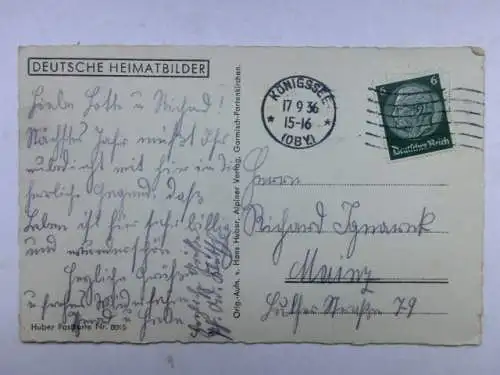 DEUTSCHE HEIMATBILDER
Liebe Lotte u Richard!
Nächstes Jahr müßt Ihr
unbedingt mit her in die
herrliche Gegend, daß
Leben ist hier sehr billig
und wunderschön
Herzliche Grüße
u frohes Wiedersehen
u
Huber Postkarte Nr.
Orig.-Aufn. v. Hans Huber, Alpiner Verlag, Garmisch-Partenkirchen.
KÖNIGSSEE
17 9 36
15-16
(OBY.)
6 6
Deutsches Reich
Herrn
Richard Ignarek
Mainz
Luther Straße 79